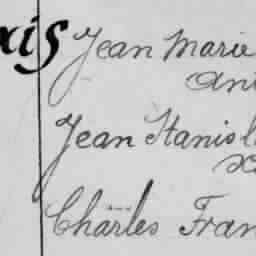 xis Jean Marie
Ant
Jean Stanisl
Charles Fran